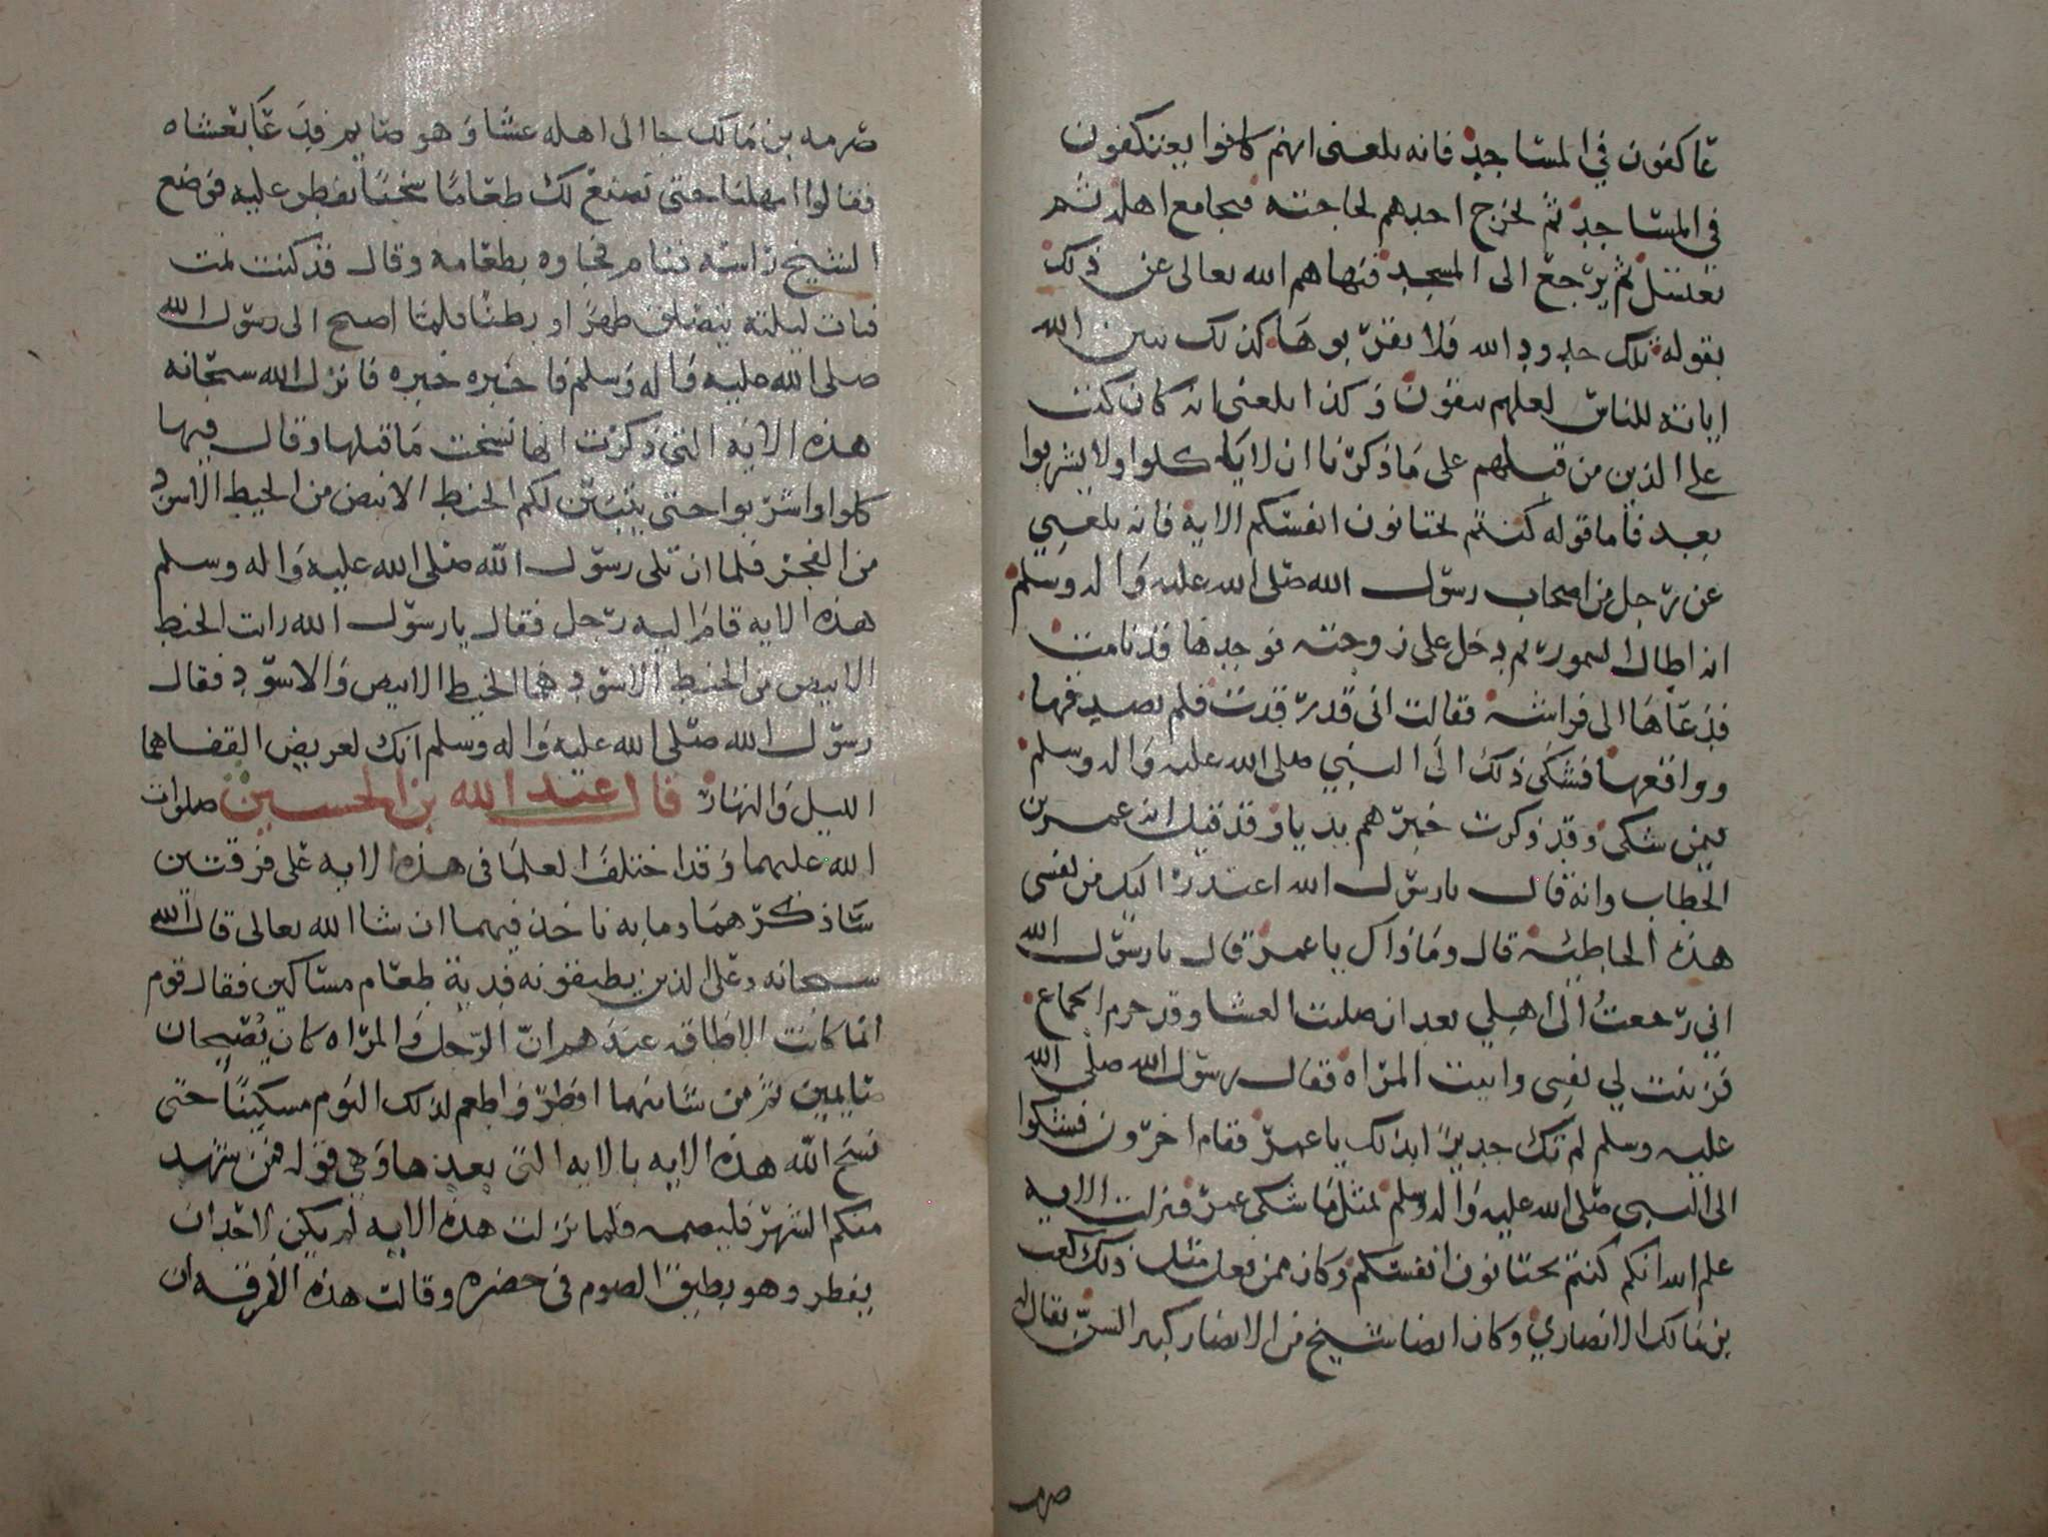 عاكفون في المساجد فانه بلغنى انهم كانوا يعتكفون
فى المساجد ثم يخرج احدهم لحاجته فيجامع اهله ثم
يغتسل ثم يرجع الى المسجد فنهاهم الله تعالى عن ذلك
بقوله تلك حدود الله فلا تقربوها كذلك يبين الله
اياته للناس لعلهم يتقون وكذا بلغنى انه كان كتب
على الذين من قبلهم على ما ذكرنا ان لا ياكلوا ولا يشربوا
بعد فاما قوله كنتم تختانون انفسكم الاية فانه بلغني
عن رجل من اصحاب رسول الله صلى الله عليه واله وسلم
انه اطال السمور ثم دخل على زوجته فوجدها قد نامت
فدعاها الى فراشه فقالت انى قد رقدت فلم يصدقها
وواقعها فشكى ذلك الى النبي صلى الله عليه واله وسلم
فيمن شكى وقد ذكرت خبرهم بديا وقد قيل انه عمر بن
الخطاب وانه قال يا رسول الله اعتذر اليك من نفسى
هذه الخاطئه قال وما ذاك يا عمر قال يا رسول الله
اني رجعت الى اهلي بعد ان صليت العشا وقد حرم الجماع
فزينت لي نفسي واتيت المراه فقال رسول الله صلى الله
عليه وسلم لم تك جديرا بذلك يا عمر فقام اخرون فشكوا
الى النبى صلى الله عليه واله وسلم بمثل ما شكى عمر فنزلت الايه
علم الله انكم كنتم تختانون انفسكم وكان ممن فعل مثل ذلك كعب
بن مالك الانصاري وكان ايضا شيخ من الانصار كبير السن يقال له
صرمه
صرمه بن مالك جا الى اهله عشا وهو صايم فدعا بعشاه
فقالوا امهلنا حتى نصنع لك طعاما سخنا تفطر عليه فوضع
الشيخ راسه فنام فجاوه بطعامه وقال قد كنت نمت
فبات ليلته يتصلق ظهرا وبطنا فلما اصبح الى رسول الله
صلى الله عليه واله وسلم فاخبره خبره فانزل الله سبحانه
هذه الايه التى ذكرت انها نسخت ما قبلها وقال فيها
كلوا واشربوا حتى يتبين لكم الخيط الابيض من الخيط الاسود
من الفجر فلما ان تلى رسول الله صلى الله عليه واله وسلم
هذه الايه قام اليه رجل فقال يا رسول الله رايت الخيط
الابيض من الخيط الاسود هما الخيط الابيض والاسود فقال
رسول الله صلى الله عليه واله وسلم انك لعريض القفا هما
الليل والنهار قال عبد الله بن الحسين صلوات
الله عليهما وقد اختلف العلما فى هذه الايه على فرقتين
ساذكرهما وما به ناخذ فيهما ان شا الله تعالى قال الله
سبحانه وعلى الذين يطيقونه فدية طعام مساكين فقال قوم
انما كانت الاطاقه عندهم ان الرجل والمراه كان يصبحان
صايمين ثم من شا منهما افطر واطعم لذلك اليوم مسكينا حتى
نسخ الله هذه الايه بالايه التى بعدها وهي قوله فمن شهد
منكم الشهر فليصمه فلما نزلت هذه الايه لم يكن لاحد ان
يفطر وهو يطيق الصوم فى حضره وقالت هذه الفرقه ان